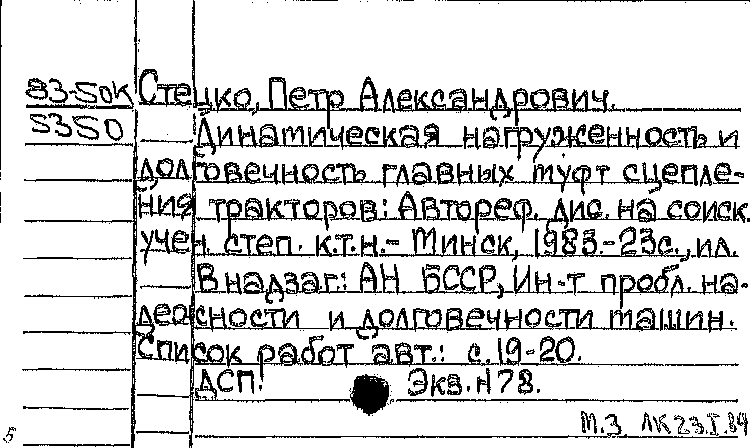 83-50К Стецко, Петр Александрович.
5350 Динамическая нагруженность и
долговечность главных муфт сцепле-
ния тракторов: Автореф. дис. на соиск.
учен. степ. к.т.н.- Минск, 1983.-23с., ил.
В надзаг.: АН БССР, Ин-т пробл. на-
дежности и долговечности машин.
Список работ авт.: с.19-20.
ДСП. Экз. N78.
М.З. ЛК 23.I.84
5